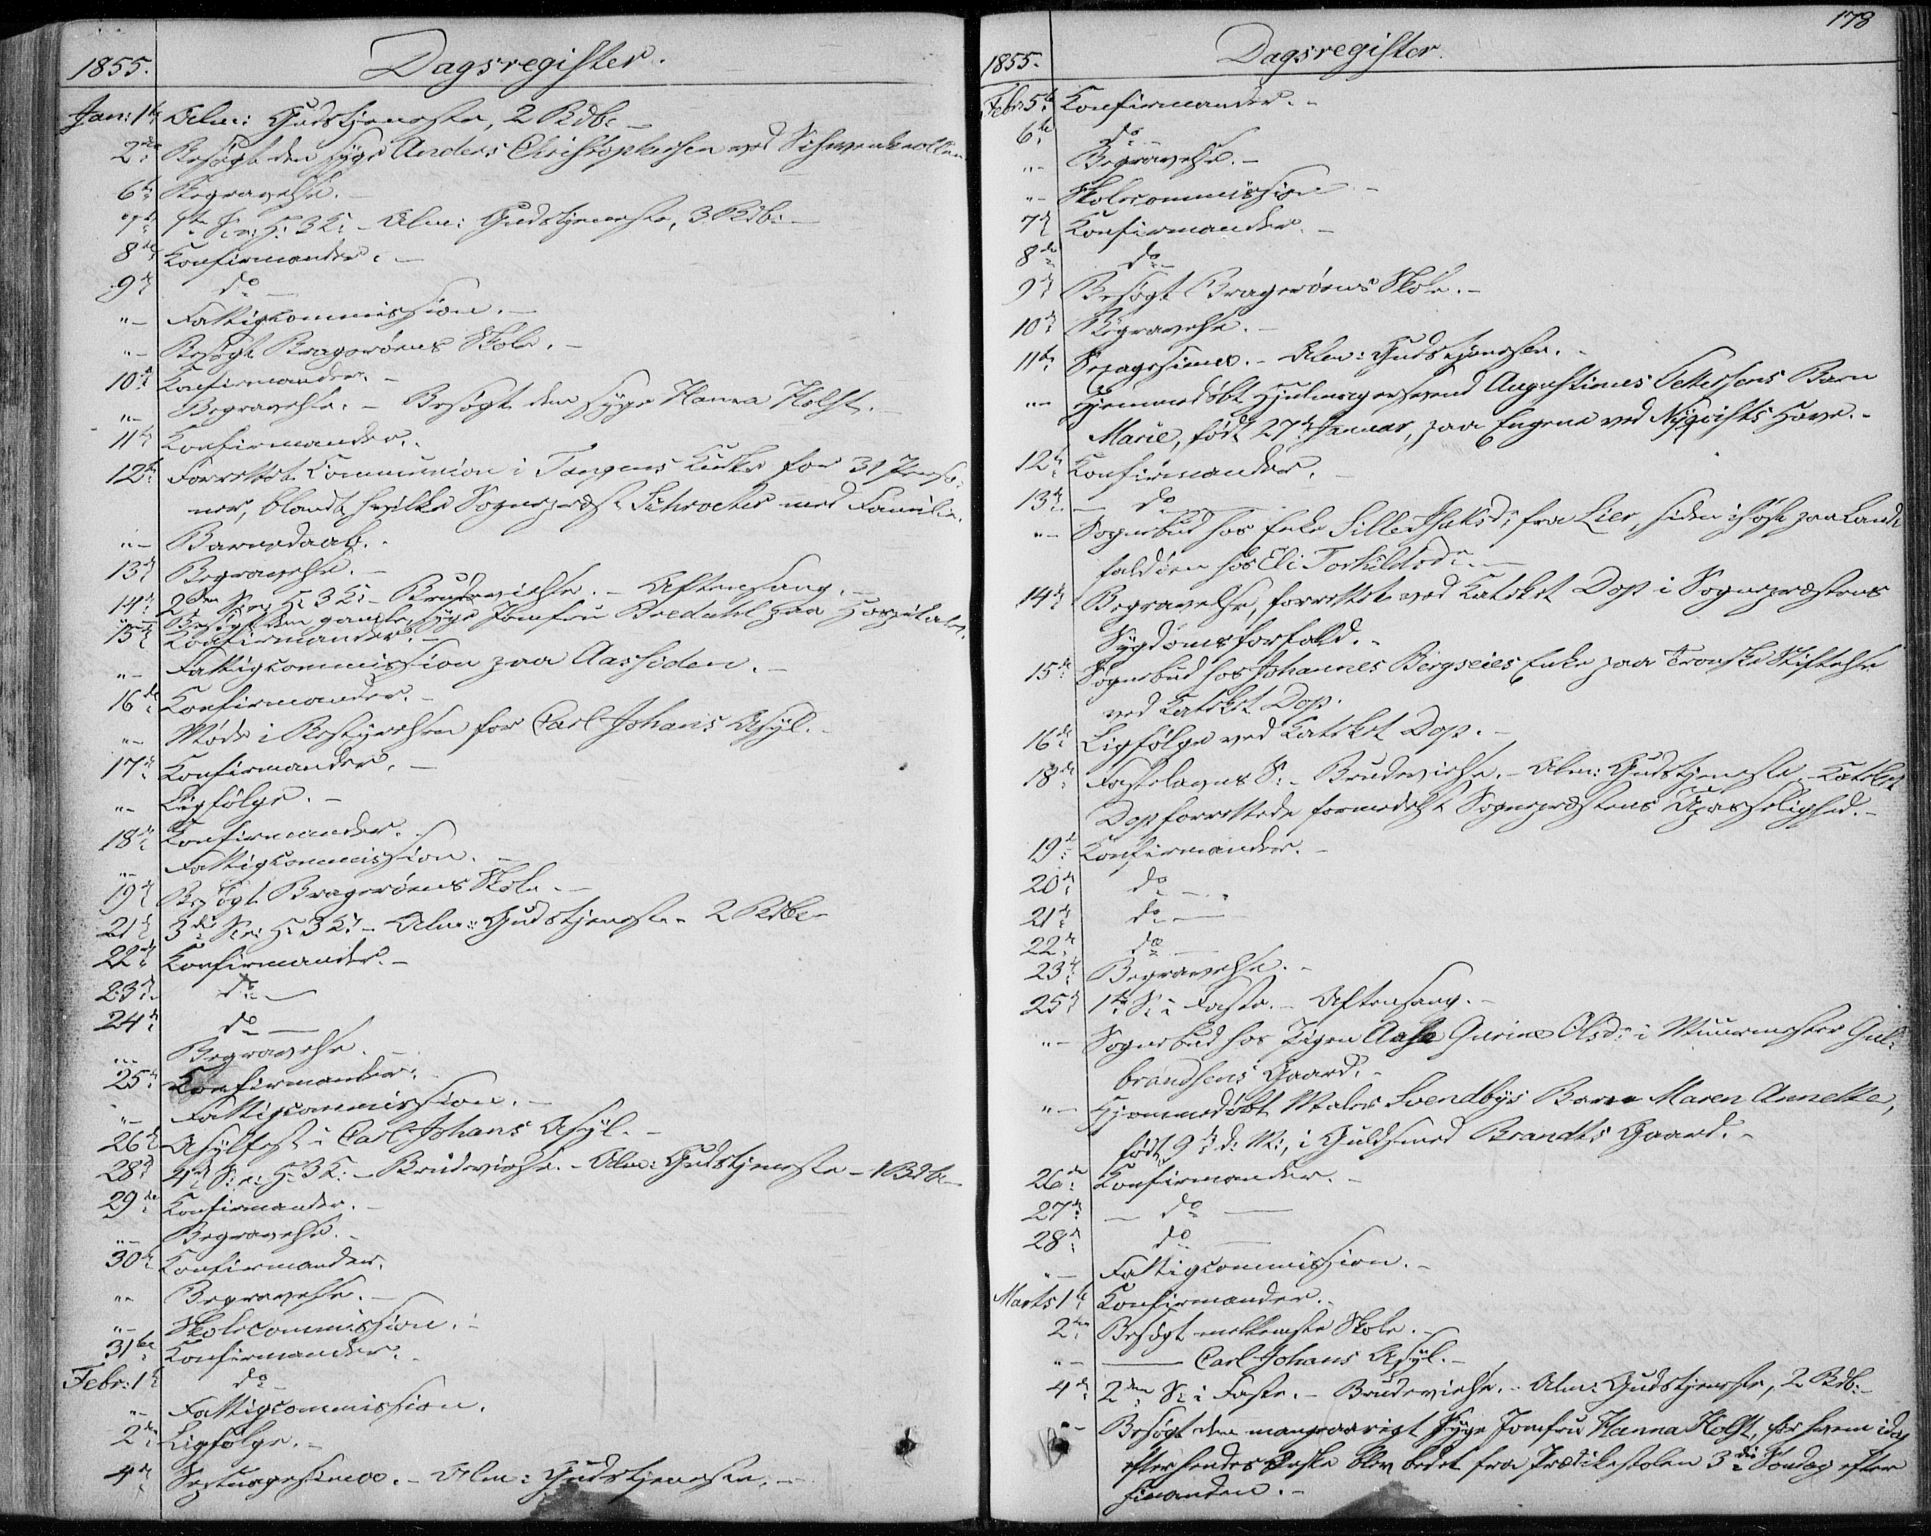 1855. Dagsregister.
Jan: 1te Alm: Gudstjeneste, 2 Bdb: —
2den Besøgt den syge Anders Christophersen ved
6te Begravelse. —
7de 1ste S. e: H: 3 K: — Alm: Gudstjeneste, 3 Bdb: —
8de Konfirmander. —
9de do —
"— Fattigcommission. —
"— Besøgt Bragerøens Skole. —
10de Konfirmander. —
"— Begravelse. — Besøgt den syge Hanna Holst.
11te Konfirmander. —
12te Forrettet Communion i Tangens Kirke for 31 Perso-
ner, blandt hvilke Sognepræst Schroeter med Familie.
"— Barnedaab. —
13de Begravelse. —
14de 2den S. e: H: 3 K: — Brudevielse. — Aftensang. —
"— Besøgt den gamle syge Jomfru Bredahl paa Hospitalet.
15de Konfirmander. —
"— Fattigcommission paa Aassiden. —
16de Konfirmander. —
"— Møde i Bestyrelsen for Carl Johans Asyl. —
17de Konfirmander. —
"— Ligfølge. —
18de Konfirmander. —
"— Fattigcommission. —
19de Besøgt Bragerøens Skole. —
21de 3die S. e: H: 3 K: — Alm: Gudstjeneste — 2 Bdb: —
22de Konfirmander. —
23de do —
24de do —
"— Begravelse. —
25de Konfirmander. —
"— Fattigcommission. —
26de Asylfest i Carl Johans Asyl. —
28de 4de S. e: H: 3 K: — Brudevielse. — Alm: Gudstjeneste — 1 Bdb: —
29de Konfirmander. —
"— Begravelse. —
30te Konfirmander.
"— Begravelse. —
"— Skolecommission. —
31te Konfirmander. —
Febr: 1te do —
"— Fattigcommission.
2den Ligfølge. —
4de Septuagesima. — Alm: Gudstjeneste. —
178
1855. Dagsregister.
Febr: 5te Konfirmander. —
6te do —
"— Begravelse. —
"— Skolecommission —
7de Konfirmander. —
8de do —
9de Besøgt Bragerøens Skole. —
10de Begravelse. —
11te Sexagesima. — Alm: Gudstjeneste. —
"— Hjemmedøbt Hjulmagersvend Augustinus Pettersens Barn
Marie, født 27de Januar, paa Engene ved Nyqvists Have. —
12te Konfirmander. —
13de — do —
"— Sognebud hos Enke Sille Isaksd: fra Lier, siden i Høst paa Land-
faldøen hos Eli Torkildsd: —
14de Begravelse, forrettet ved Kateket Dop i Sognepræstens
Sygdomsforfald. —
15de Sognebud hos Johannes Bergseies Enke paa Tronske Stiftelse
ved Kateket Dop.
16de Ligfølge ved Kateket Dop. —
18de Fastelavns S: — Brudevielse. — Alm: Gudstjeneste — Kateket
Dop forrettede formedelst Sognepræstens Upasselighed. —
19de Konfirmander. —
20de do —
21de do —
22de do —
23de Begravelse. —
25de 1ste S: i Faste. — Aftensang. —
"— Sognebud hos Pigen Aase Gurine Olsd: i Muurmester Gul-
brandsens Gaard. —
"— Hjemmedøbt Maler Svendbys Barn Maren Annette,
født 9de d: M:, i Guldsmed Brandts Gaard. —
26de Konfirmander. —
27de — do —
28de do —
"— Fattigcommission. —
Marts 1te Konfirmander. —
2den Besøgt mellemste Skole. —
"— — Carl Johans Asyl. —
4de 2den S: i Faste. — Brudevielse. — Alm: Gudstjeneste, 2 Bdb: —
"— Besøgt den mangeaarigt syge Jomfru Hanna Holst, for hvem idag
efter hendes Ønske blev bedet fra Prædikestolen 3die Søndag efter
hinanden. —